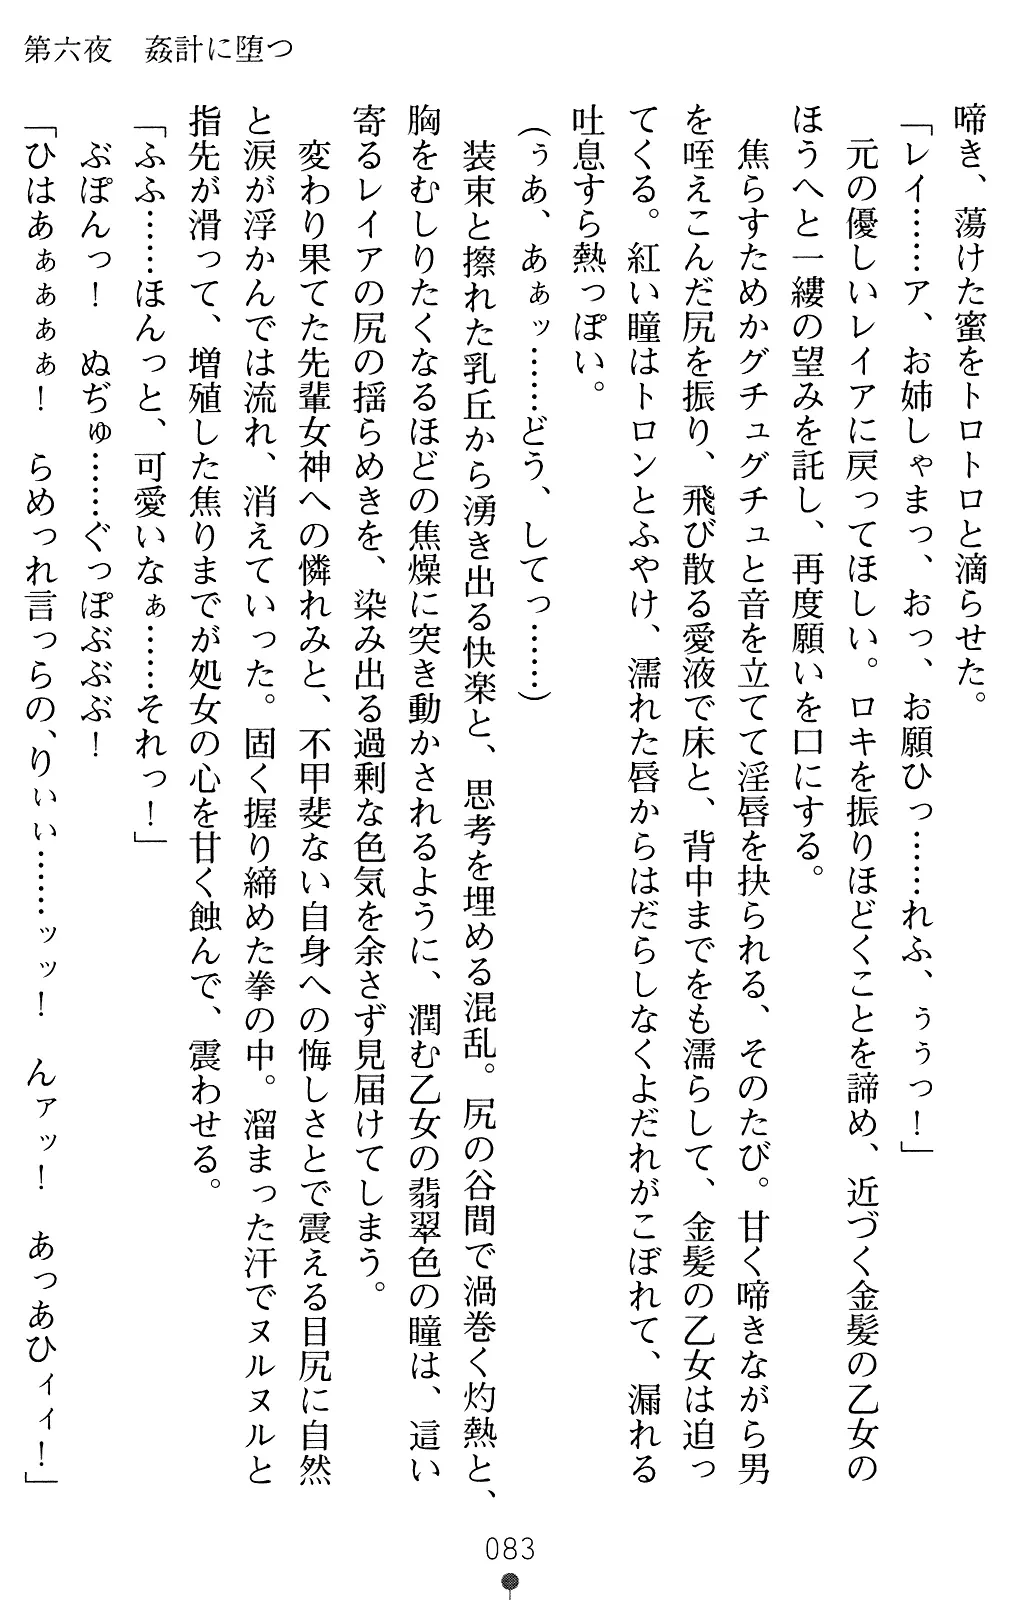 第六夜　姦計に堕つ
啼き、蕩けた蜜をトロトロと滴らせた。
「レイ……ア、お姉しゃまっ、おっ、お願ひっ……れふ、ぅぅっ！」
元の優しいレイアに戻ってほしい。ロキを振りほどくことを諦め、近づく金髪の乙女の
ほうへと一縷の望みを託し、再度願いを口にする。
焦らすためかグチュグチュと音を立てて淫唇を抉られる、そのたび。甘く啼きながら男
を咥えこんだ尻を振り、飛び散る愛液で床と、背中までをも濡らして、金髪の乙女は迫っ
てくる。紅い瞳はトロンとふやけ、濡れた唇からはだらしなくよだれがこぼれて、漏れる
吐息すら熱っぽい。
（ぅあ、あぁッ……どう、してっ……）
装束と擦れた乳丘から湧き出る快楽と、思考を埋める混乱。尻の谷間で渦巻く灼熱と、
胸をむしりたくなるほどの焦燥に突き動かされるように、潤む乙女の翡翠色の瞳は、這い
寄るレイアの尻の揺らめきを、染み出る過剰な色気を余さず見届けてしまう。
変わり果てた先輩女神への憐れみと、不甲斐ない自身への悔しさとで震える目尻に自然
と涙が浮かんでは流れ、消えていった。固く握り締めた拳の中。溜まった汗でヌルヌルと
指先が滑って、増殖した焦りまでが処女の心を甘く蝕んで、震わせる。
「ふふ……ほんっと、可愛いなぁ……それっ！」
ぶぽんっ！　ぬぢゅ……ぐっぽぶぶぶ！
「ひはあぁぁぁぁ！　らめっれ言っらの、りぃぃ……ッッ！　んァッ！　あっあひィィ！」
083